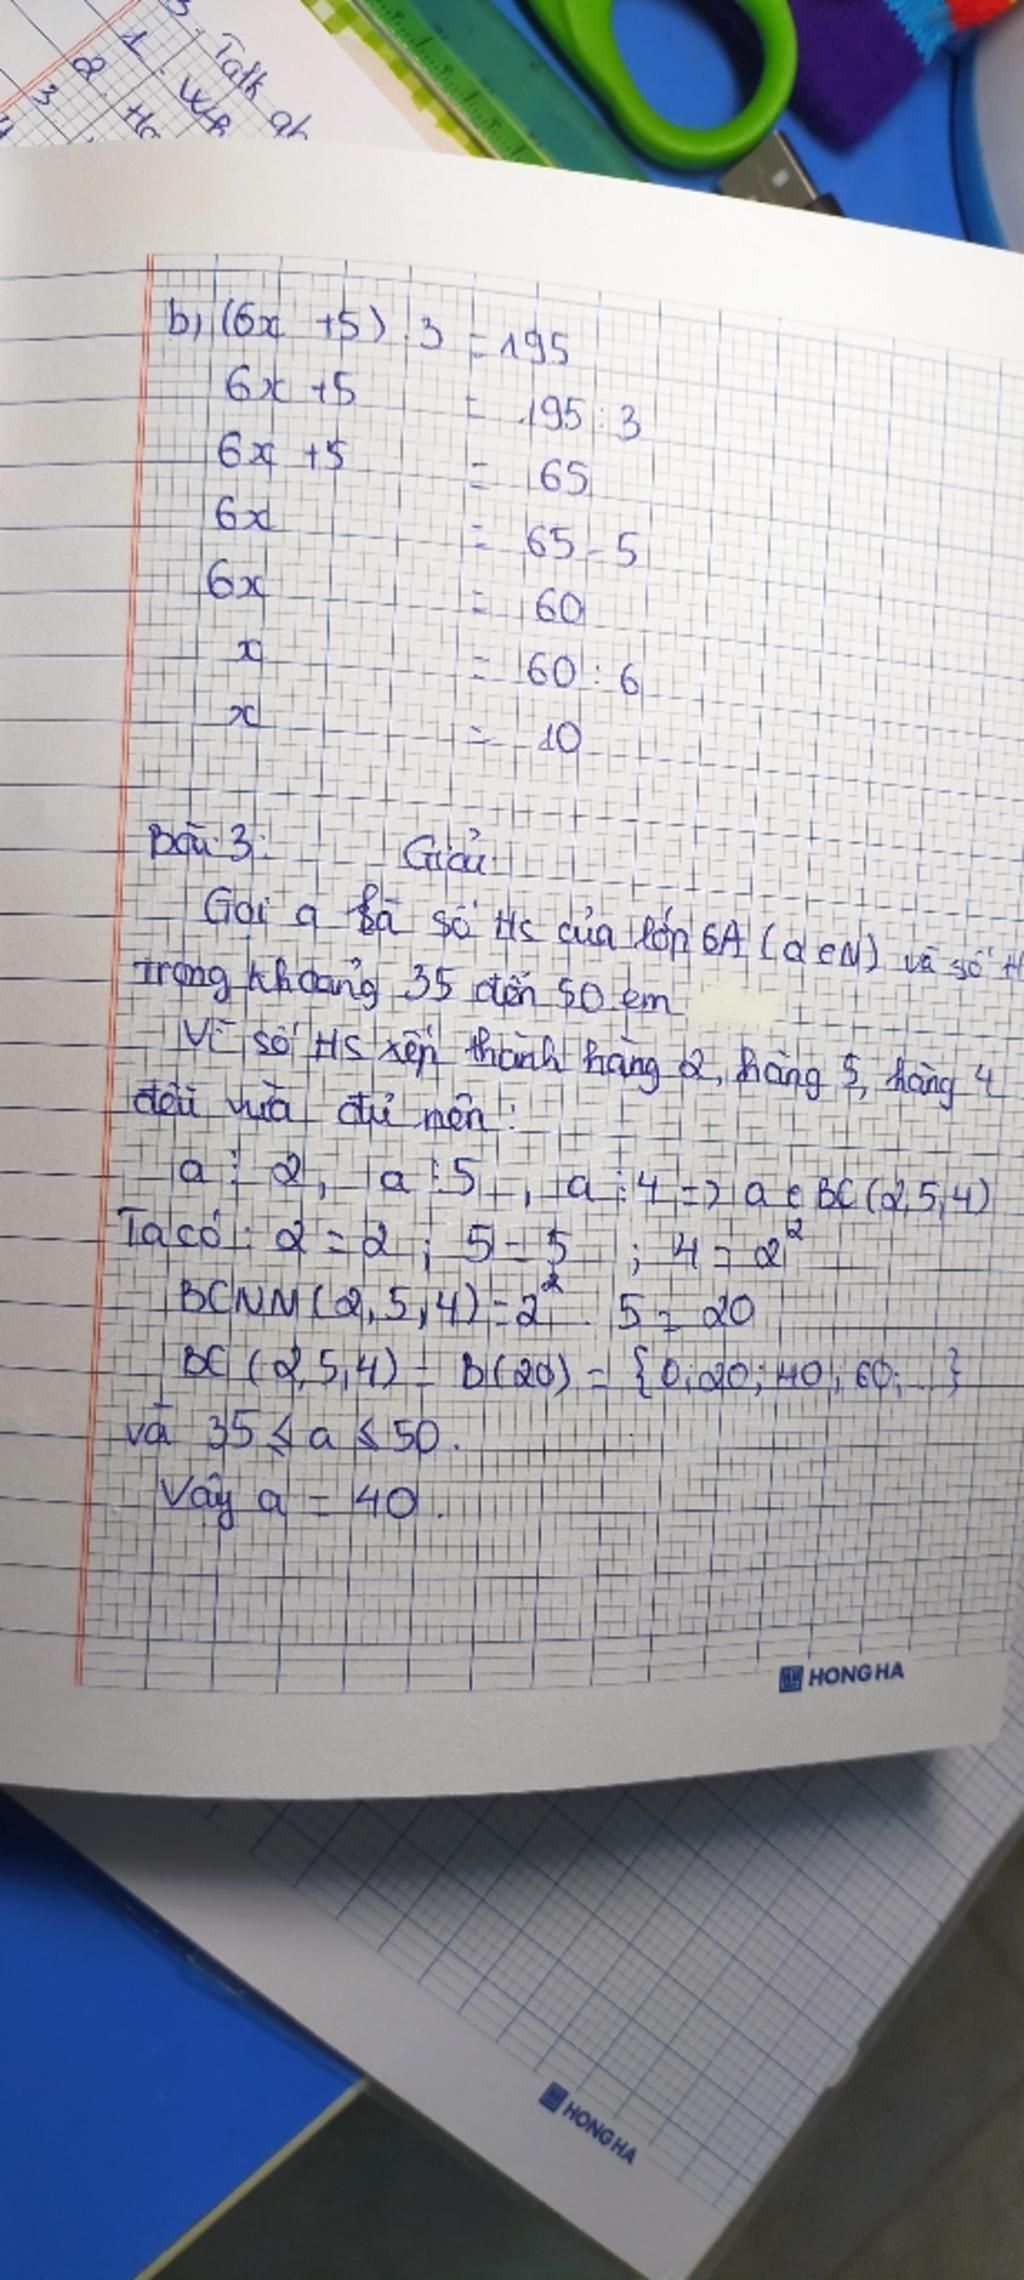 3. Talk ab
1. Wh
2. Ho
3
b) (6x + 5) . 3 = 195
6x + 5 = 195 : 3
6x + 5 = 65
6x = 65 - 5
6x = 60
x = 60 : 6
x = 10
Bài 3: Giải
Gọi a là số HS của lớp 6A (a ∈ N) và số H
trong khoảng 35 đến 50 em
Vì số HS xếp thành hàng 2, hàng 5, hàng 4
đều vừa đủ nên:
a ⋮ 2, a ⋮ 5, a ⋮ 4 => a ∈ BC(2,5,4)
Ta có: 2 = 2; 5 = 5; 4 = 2²
BCNN(2,5,4) = 2² . 5 = 20
BC(2,5,4) = B(20) = {0; 20; 40; 60; ...}
và 35 ≤ a ≤ 50.
Vậy a = 40.
HONG HA
HONG HA